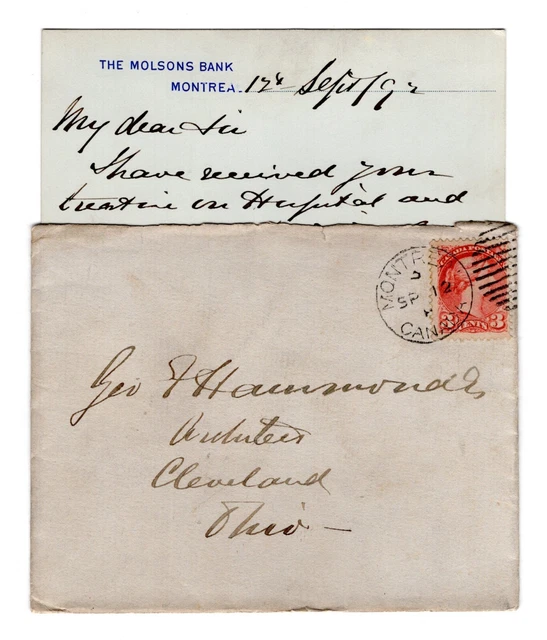 THE MOLSONS BANK
MONTREA. 12th Sept/92
My dear Sir
I have received your
treatise on Hospital and
MONTR
5
SP 12
CANADA
CANADA POSTAGE
3 CENTS 3
Geo F Hammond Es
Architect
Cleveland
Ohio —